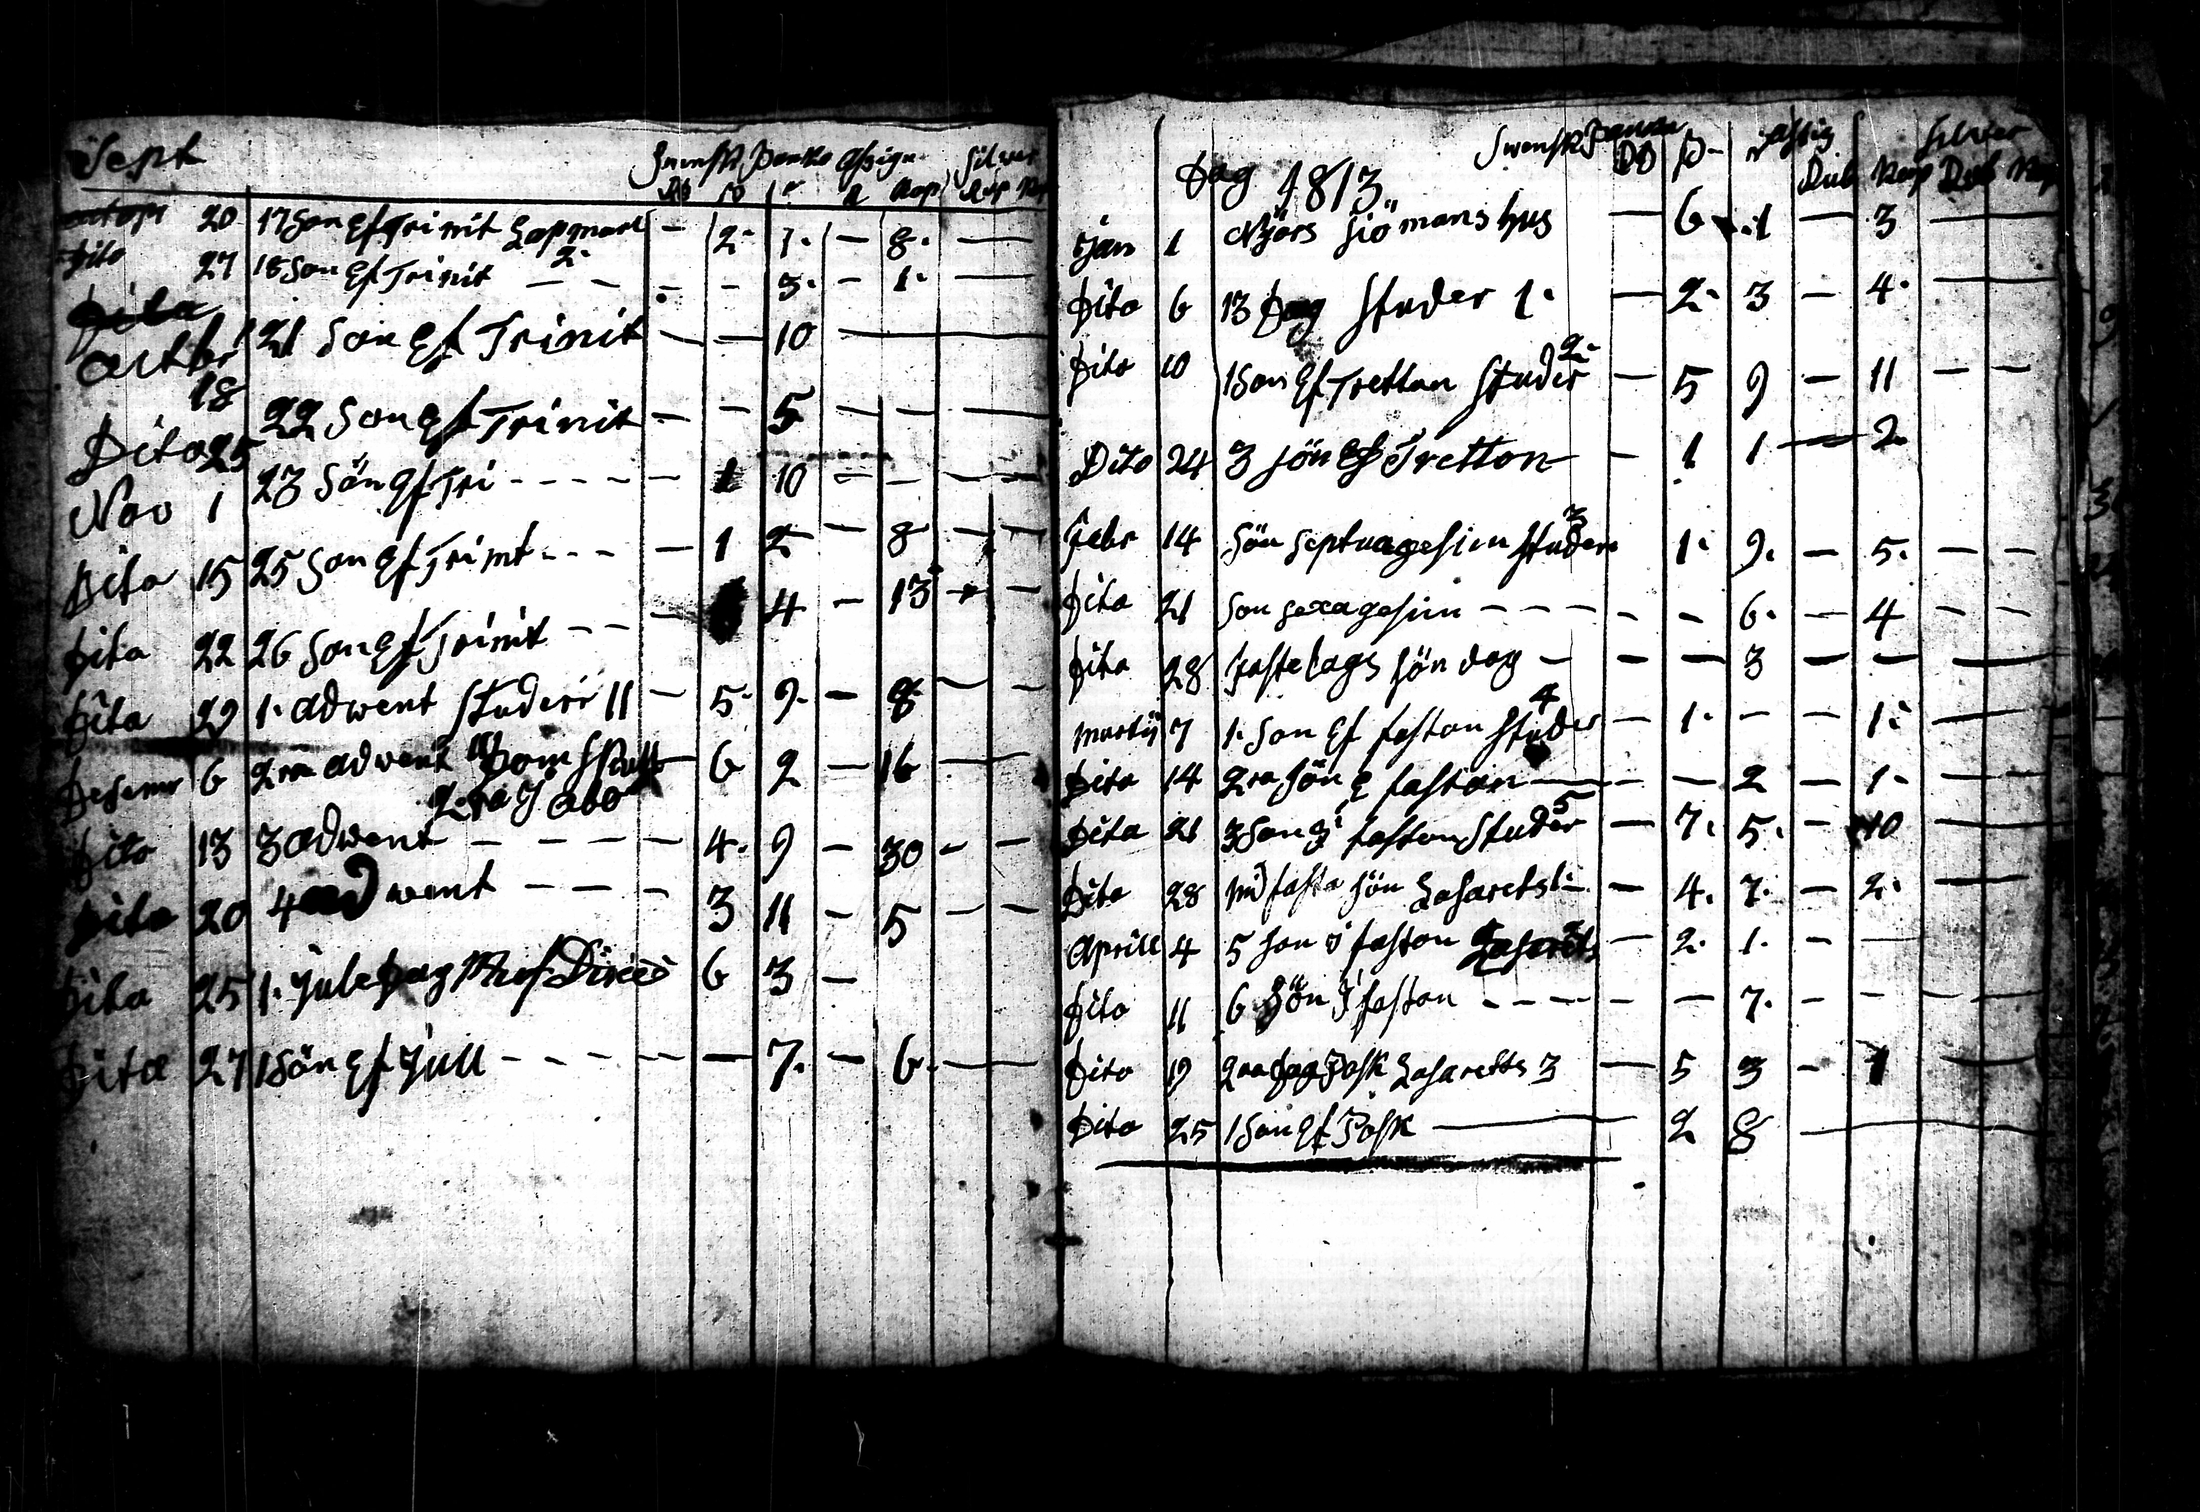 Sept Swensk Banko Assign Silver
RD s r R Kop Rup Kop
20 17 Son Ef Trinit Lapmark - 2. 1. - 8. -
Dito 27 18 Son Ef Trinit 2. - - - - 3. - 1. -
Dito
Octbr 18 21 Son Ef Trinit - - 10 -
Dito 25 22 Son Ef Trinit - - 5 - - -
Nov 1 23 Sön Ef Tri - - - - 1 10 - - -
Dito 15 25 Son Ef Trint - - - - 1 2 - 8 - -
Dito 22 26 Son Ef Trinit - - - 4 - 13 - -
Dito 29 1. Adwent Studerr 11 - 5. 9. - 8. - -
Desemr 6 2ra adwent Dom 6 2 - 16 - -
2ra I Åbo
Dito 13 3 Adwent - - - - 4. 9 - 30 - -
Dito 20 4 adwent - - - 3 11 - 5 - -
Dito 25 1. Jule Dag 6 3 -
Dito 27 1 Sön Ef Jull - - - - - 7. - 6. -
Dag 1813 Swensk Banco Assig Silver
RD s r Rub Kop Rub Kop
Jan 1 Nyårs Siömans hus - 6 1 - 3 -
Dito 6 13 Dag Studer 1. - 2. 3 - 4. -
Dito 10 1 Son Ef Trettan Studer 2. - 5 9 - 11 - -
Dito 24 3 Sön Ef Tretton - 1 1 - 2
Febr 14 Sön Septuagesim Studer 3 1. 9. - 5. - -
Dito 21 Son Sexagesim - - - - - - 6. - 4 - -
Dito 28 Fastelags Söndag - - - 3 - - - -
Martij 7 1. Son Ef faston Studer 4 - 1. - - 1. -
Dito 14 2ra Sön E faston - - 2 - 1. -
Dito 21 3 Son I faston Studer 5 - 7. 5. - 10 -
Dito 28 Midfasta Sön Lasarets 1. - 4. 7. - 2. -
Aprill 4 5 Son I faston Lasarets - 2. 1. - -
Dito 11 6 Sön I faston - - - - - 7. - - - -
Dito 19 2ra Dag Påsk Lasaretts 3 - 5 3 - 1 -
Dito 25 1 Son Ef Påsk - 2 8 -